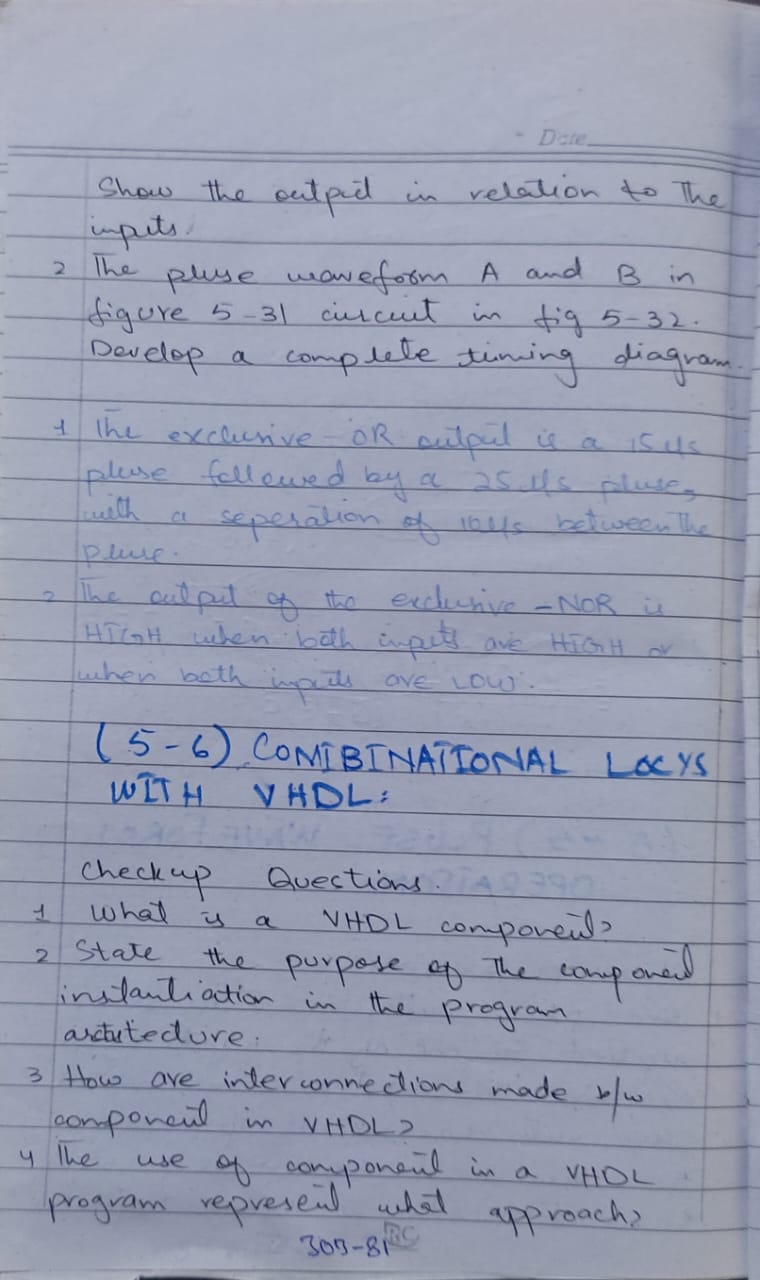 Date
Show the output in relation to The
inputs.
2 The pluse waveform A and B in
figure 5-31 circuit in fig 5-32.
Develop a complete timing diagram.
1 The exclusive-OR output is a 15 us
pluse followed by a 25 us pluse,
with a seperation of 10us between The
pluse.
2 The output of the exclusive-NOR is
HIGH when both inputs are HIGH or
when both inputs are LOW.
(5-6) COMIBINATIONAL LOCYS
WITH VHDL:
Checkup Questions.
1 What is a VHDL component?
2 State the purpose of The component
instantiation in the program
3 How are interconnections made b/w
component in VHDL?
4 The use of component in a VHDL
program represent what approach?